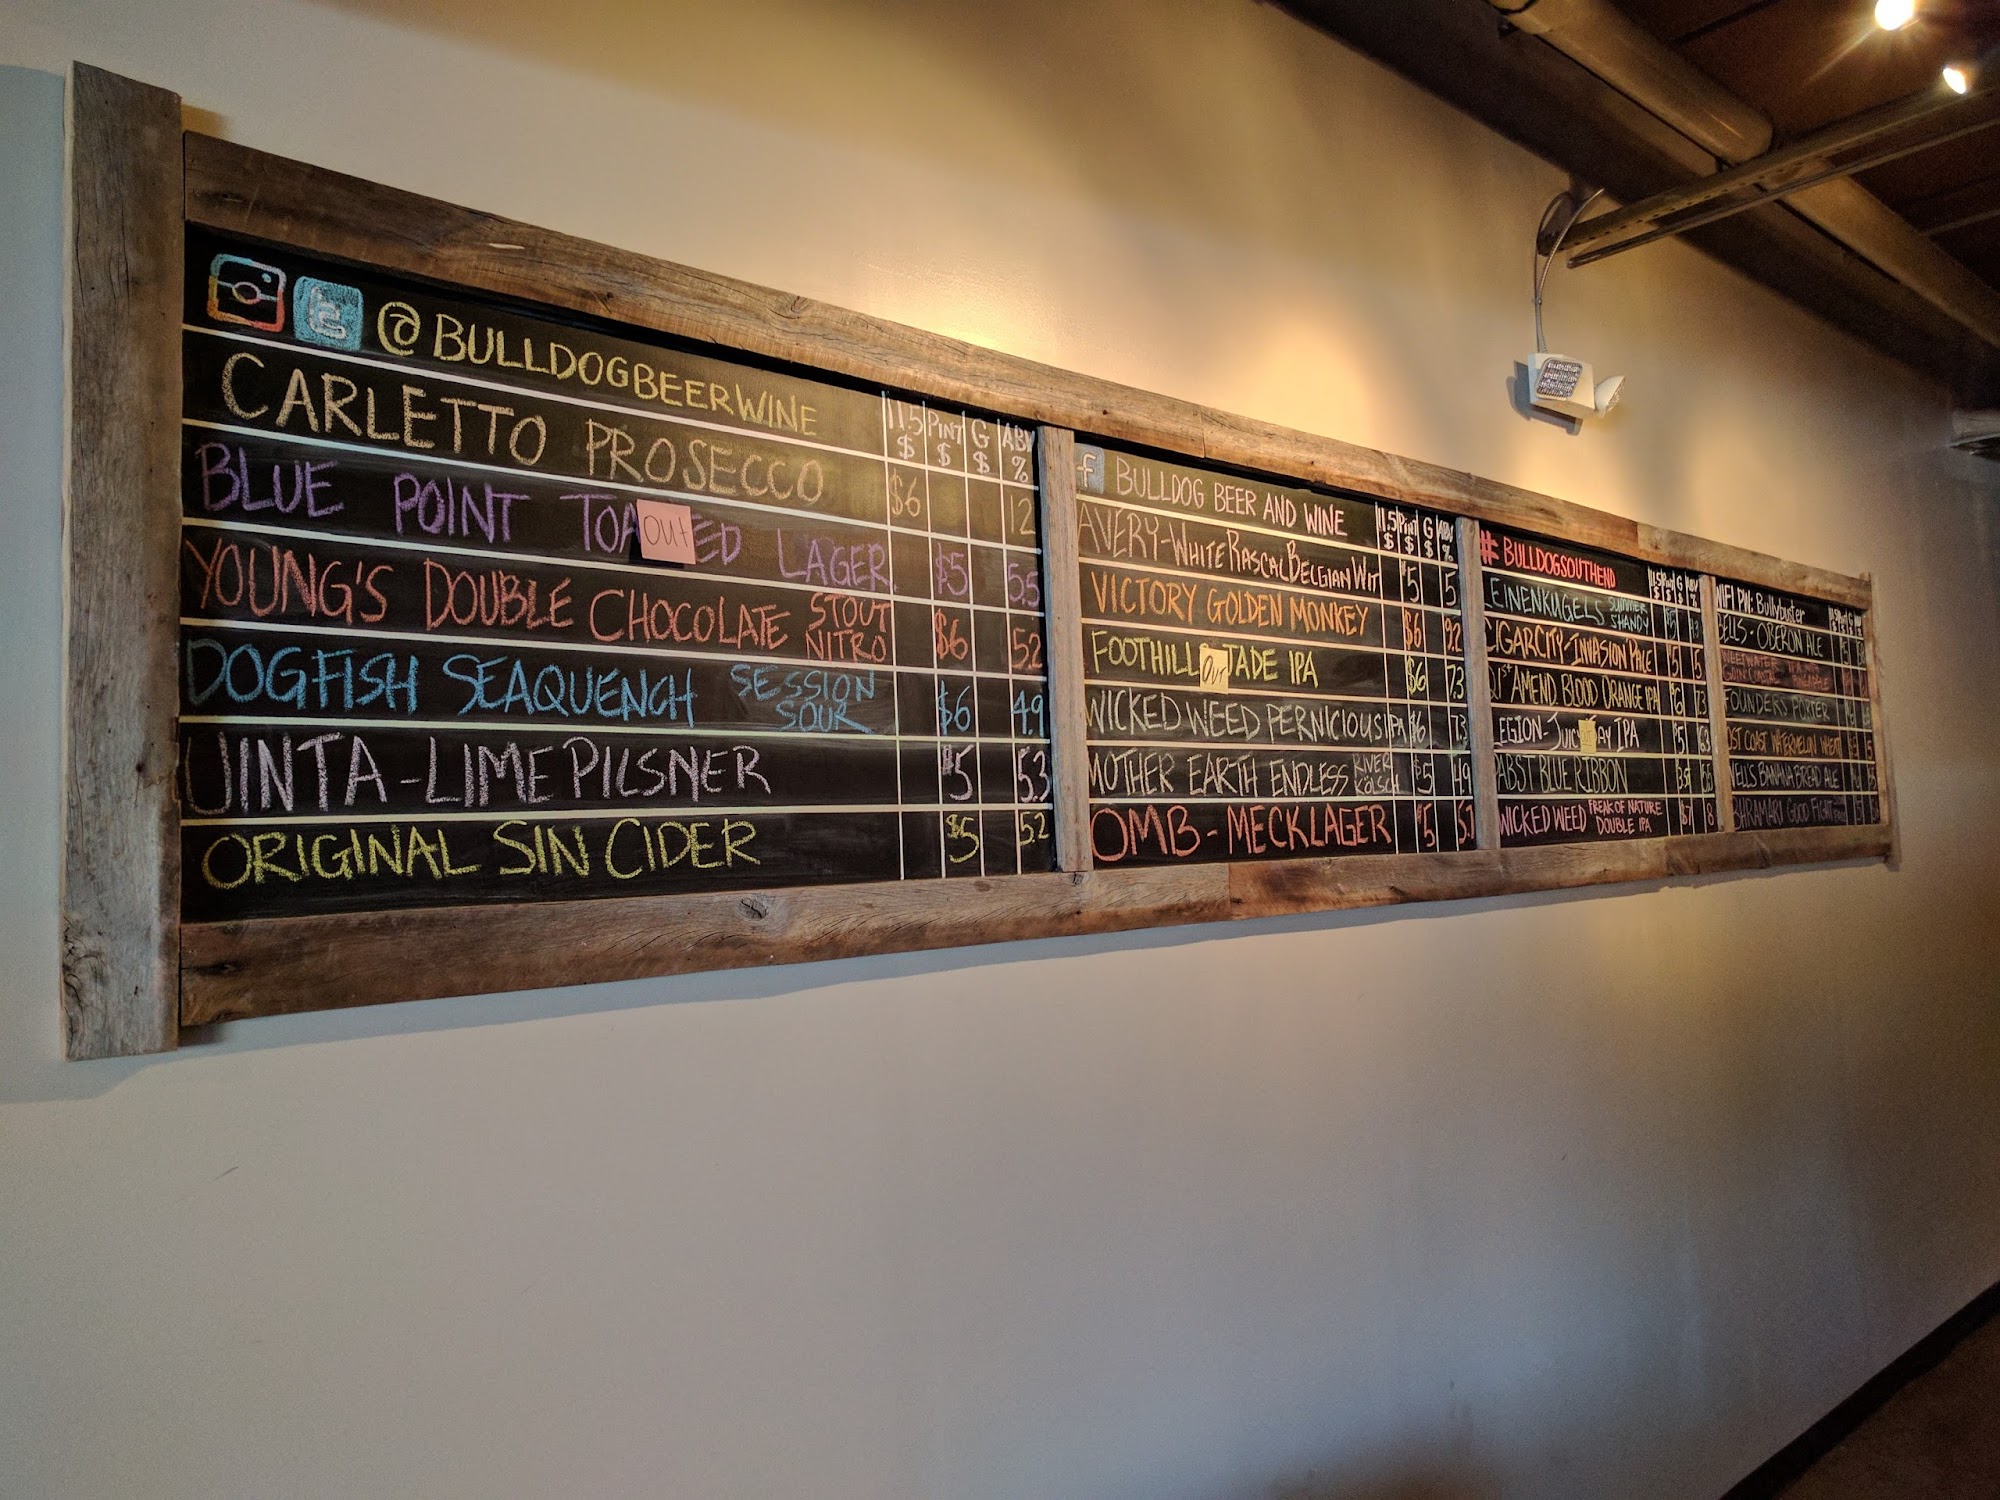 @BULLDOGBEERWINE 11.5 $ PINT $ G $ ABV %
CARLETTO PROSECCO $6 12
BLUE POINT TOA OUT ED LAGER $5 5.5
YOUNG'S DOUBLE CHOCOLATE STOUT NITRO $6 5.2
DOGFISH SEAQUENCH SESSION SOUR $6 4.9
UINTA - LIME PILSNER $5 5.3
ORIGINAL SIN CIDER $5 5.2
f BULLDOG BEER AND WINE 11.5 $ PINT $ G $ ABV %
AVERY - WHITE RASCAL BELGIAN WIT $5 5
VICTORY GOLDEN MONKEY $6 9.2
FOOTHILL OUT JADE IPA $6 7.3
WICKED WEED PERNICIOUS IPA $6 7.3
MOTHER EARTH ENDLESS RIVER KÖLSCH $5 4.9
OMB - MECKLAGER $5
#BULLDOGSOUTHEND 11.5 $ PINT $ G $ ABV %
LEINENKUGELS SUMMER SHANDY $5
CIGAR CITY - INVASION PALE $5 5
21ST AMEND. BLOOD ORANGE IPA $6
LEGION - JUICY AY IPA $5
PABST BLUE RIBBON
WICKED WEED FREAK OF NATURE DOUBLE IPA $7 8
WIFI PW: Bullybuster
BELLS - OBERON ALE
FOUNDERS PORTER
COAST WATERMELON WHEAT
WELLS BANANA BREAD ALE
GOOD FIGHT